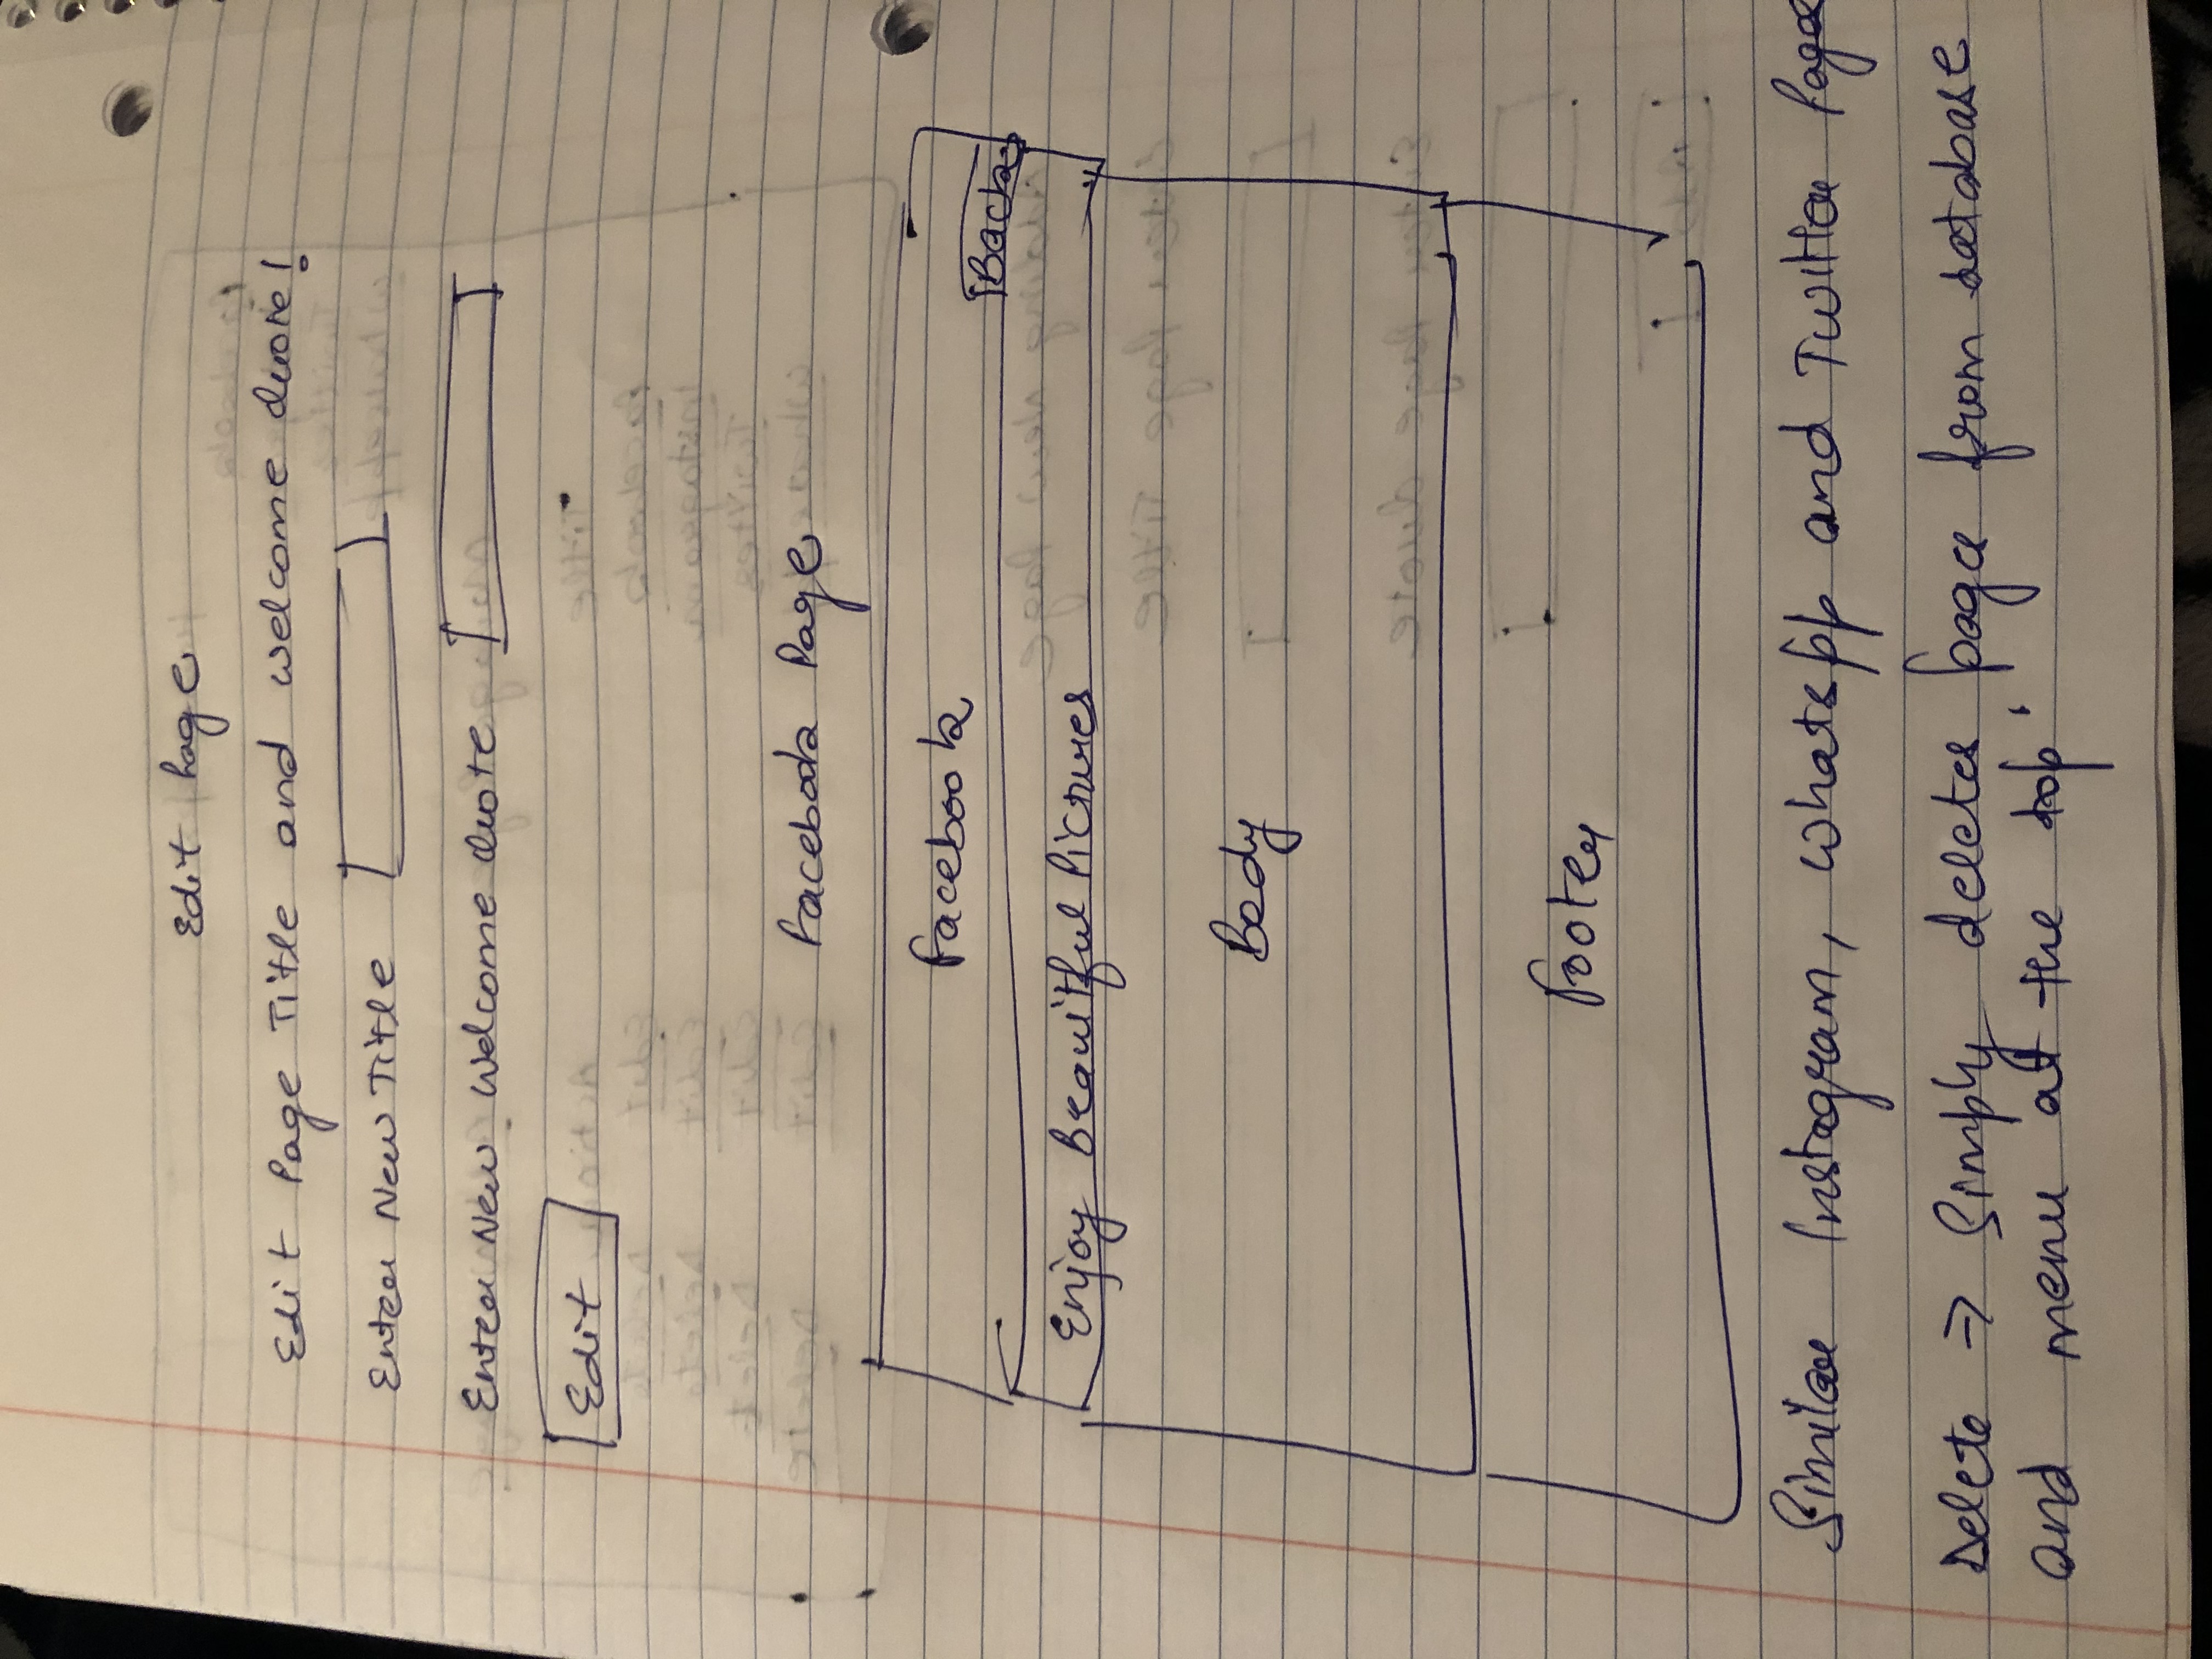 Edit Page
Edit Page Title and Welcome Quote!
Enter New Title
Enter New Welcome Quote
Edit
Facebook Page
Facebook
Back
Enjoy Beauitful Pictures
Body
Footer
Similar Instagram, Whatspp and Twitter Pages
Delete → Simply deletes page from database
and menu at the top.